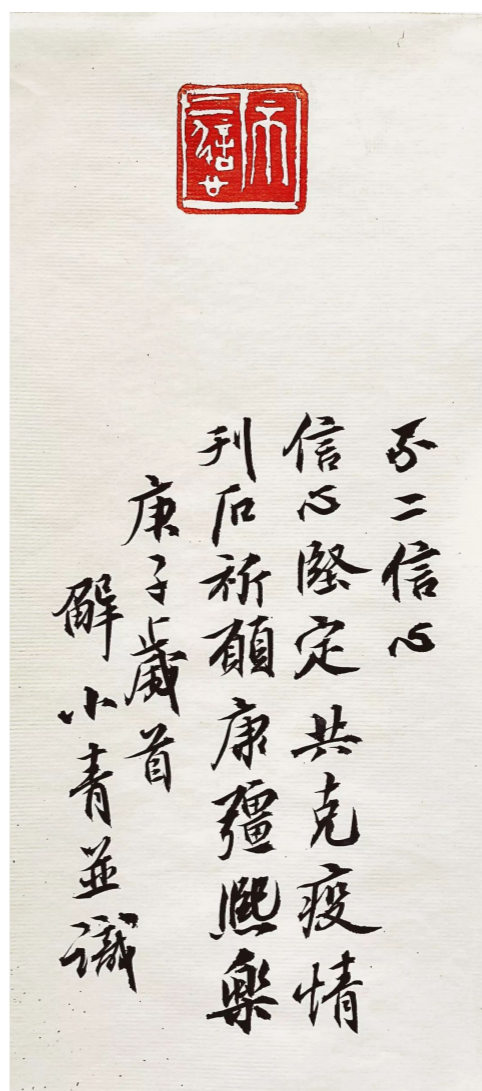 不
二信心
不二信心
信心堅定共克疫情
刊石祈願康彊熙樂
庚子歲首
解小青並識